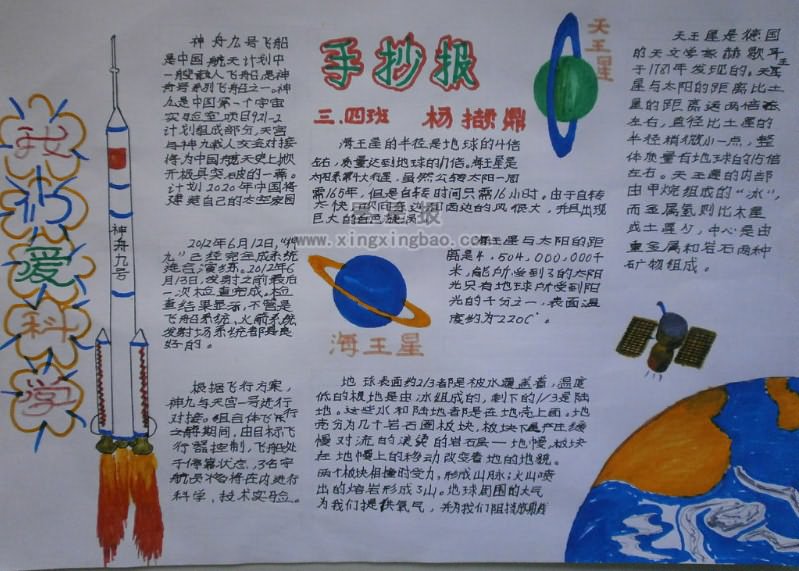 我们爱科学
神舟九号
神舟九号飞船
是中国航天计划中
一艘载人飞船是神
舟号系列飞船之一。神
九是中国第一个宇宙
实验室项目921-2
计划组成部分,天宫
与神九载人交会对接
将为中国航天史上掀
开极具突破的一章。
计划2020年中国将
建造自己的太空家园
2012年6月12日,"神
九"已经完成系统
6月13日,发射之前最后
一次检查完成,检
查结果显示,不管是
飞船系统、火箭系统
发射场系统都是良
好的。
根据飞行方案,
神九与天宫一号进行
对接。组合体飞行
期间,由目标飞
行器控制,飞船处
于停靠状态,3名宇
航员将在内进行
科学、技术实验。
手抄报
三.四班 杨撷鼎
海王星的半径是地球的4倍
左右,质量达到地球的17倍。海王星是
太阳系第大行星,虽然公转太阳一周
需165年,但是自转时间只需16小时,由于自转
太快,
巨大的白色旋涡
www.xingxingbao.com
海王星与太阳的距
离是4,504,000,000千
米,能所受到的太阳
光只有地球所受到阳
光的千分之一,表面温
度约为220C°。
海王星
天王星
天王星是德国
的天文学家赫歇耳
于1781年发现的。天王
星与太阳的距离比土
星的距离远两倍
左右,直径比土星的
半径稍微小一点,整
体质量有地球的15倍
左右。天王星的内部
由甲烷组成的"冰",
而金属氢则比木星
或土星少,中心是由
重金属和岩石两种
矿物组成。
地球表面约2/3都是被水覆盖着,温度
低的极地是由冰组成的,剩下的1/3是陆
地。这些水和陆地都是在地壳上面。地
壳分为几个岩石圈板块,板块下是产生缓
慢对流的滚烫的岩石层—地慢,板块
在地慢上的移动改变着地的地貌。
两个板块相撞时受力,形成山脉;火山喷
出的熔岩形成了山。地球周围的大气
为我们提供氧气,并为我们阻挡